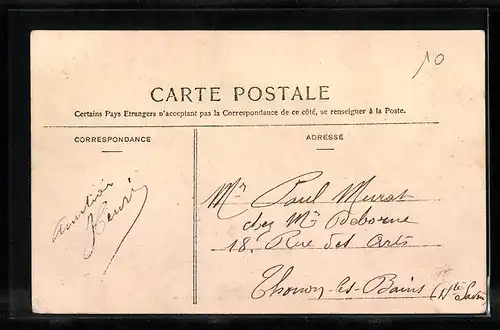 10
CARTE POSTALE
Certains Pays Etrangers n'acceptant pas la Correspondance de ce côté, se renseigner à la Poste.
CORRESPONDANCE
ADRESSE
Amitiés
Henri
Mr Paul Murat
chez Mr Deborne
18, Rue des Arts
Thonon-les-Bains
(Hte Savoie)